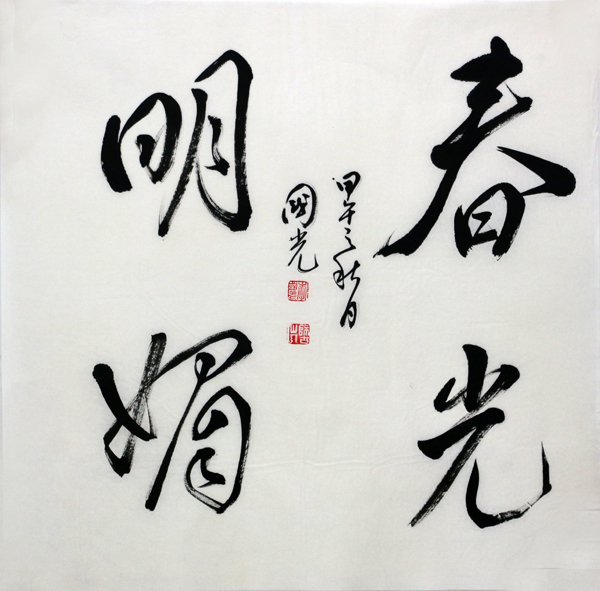 春光
明媚
甲午之秋月
國光